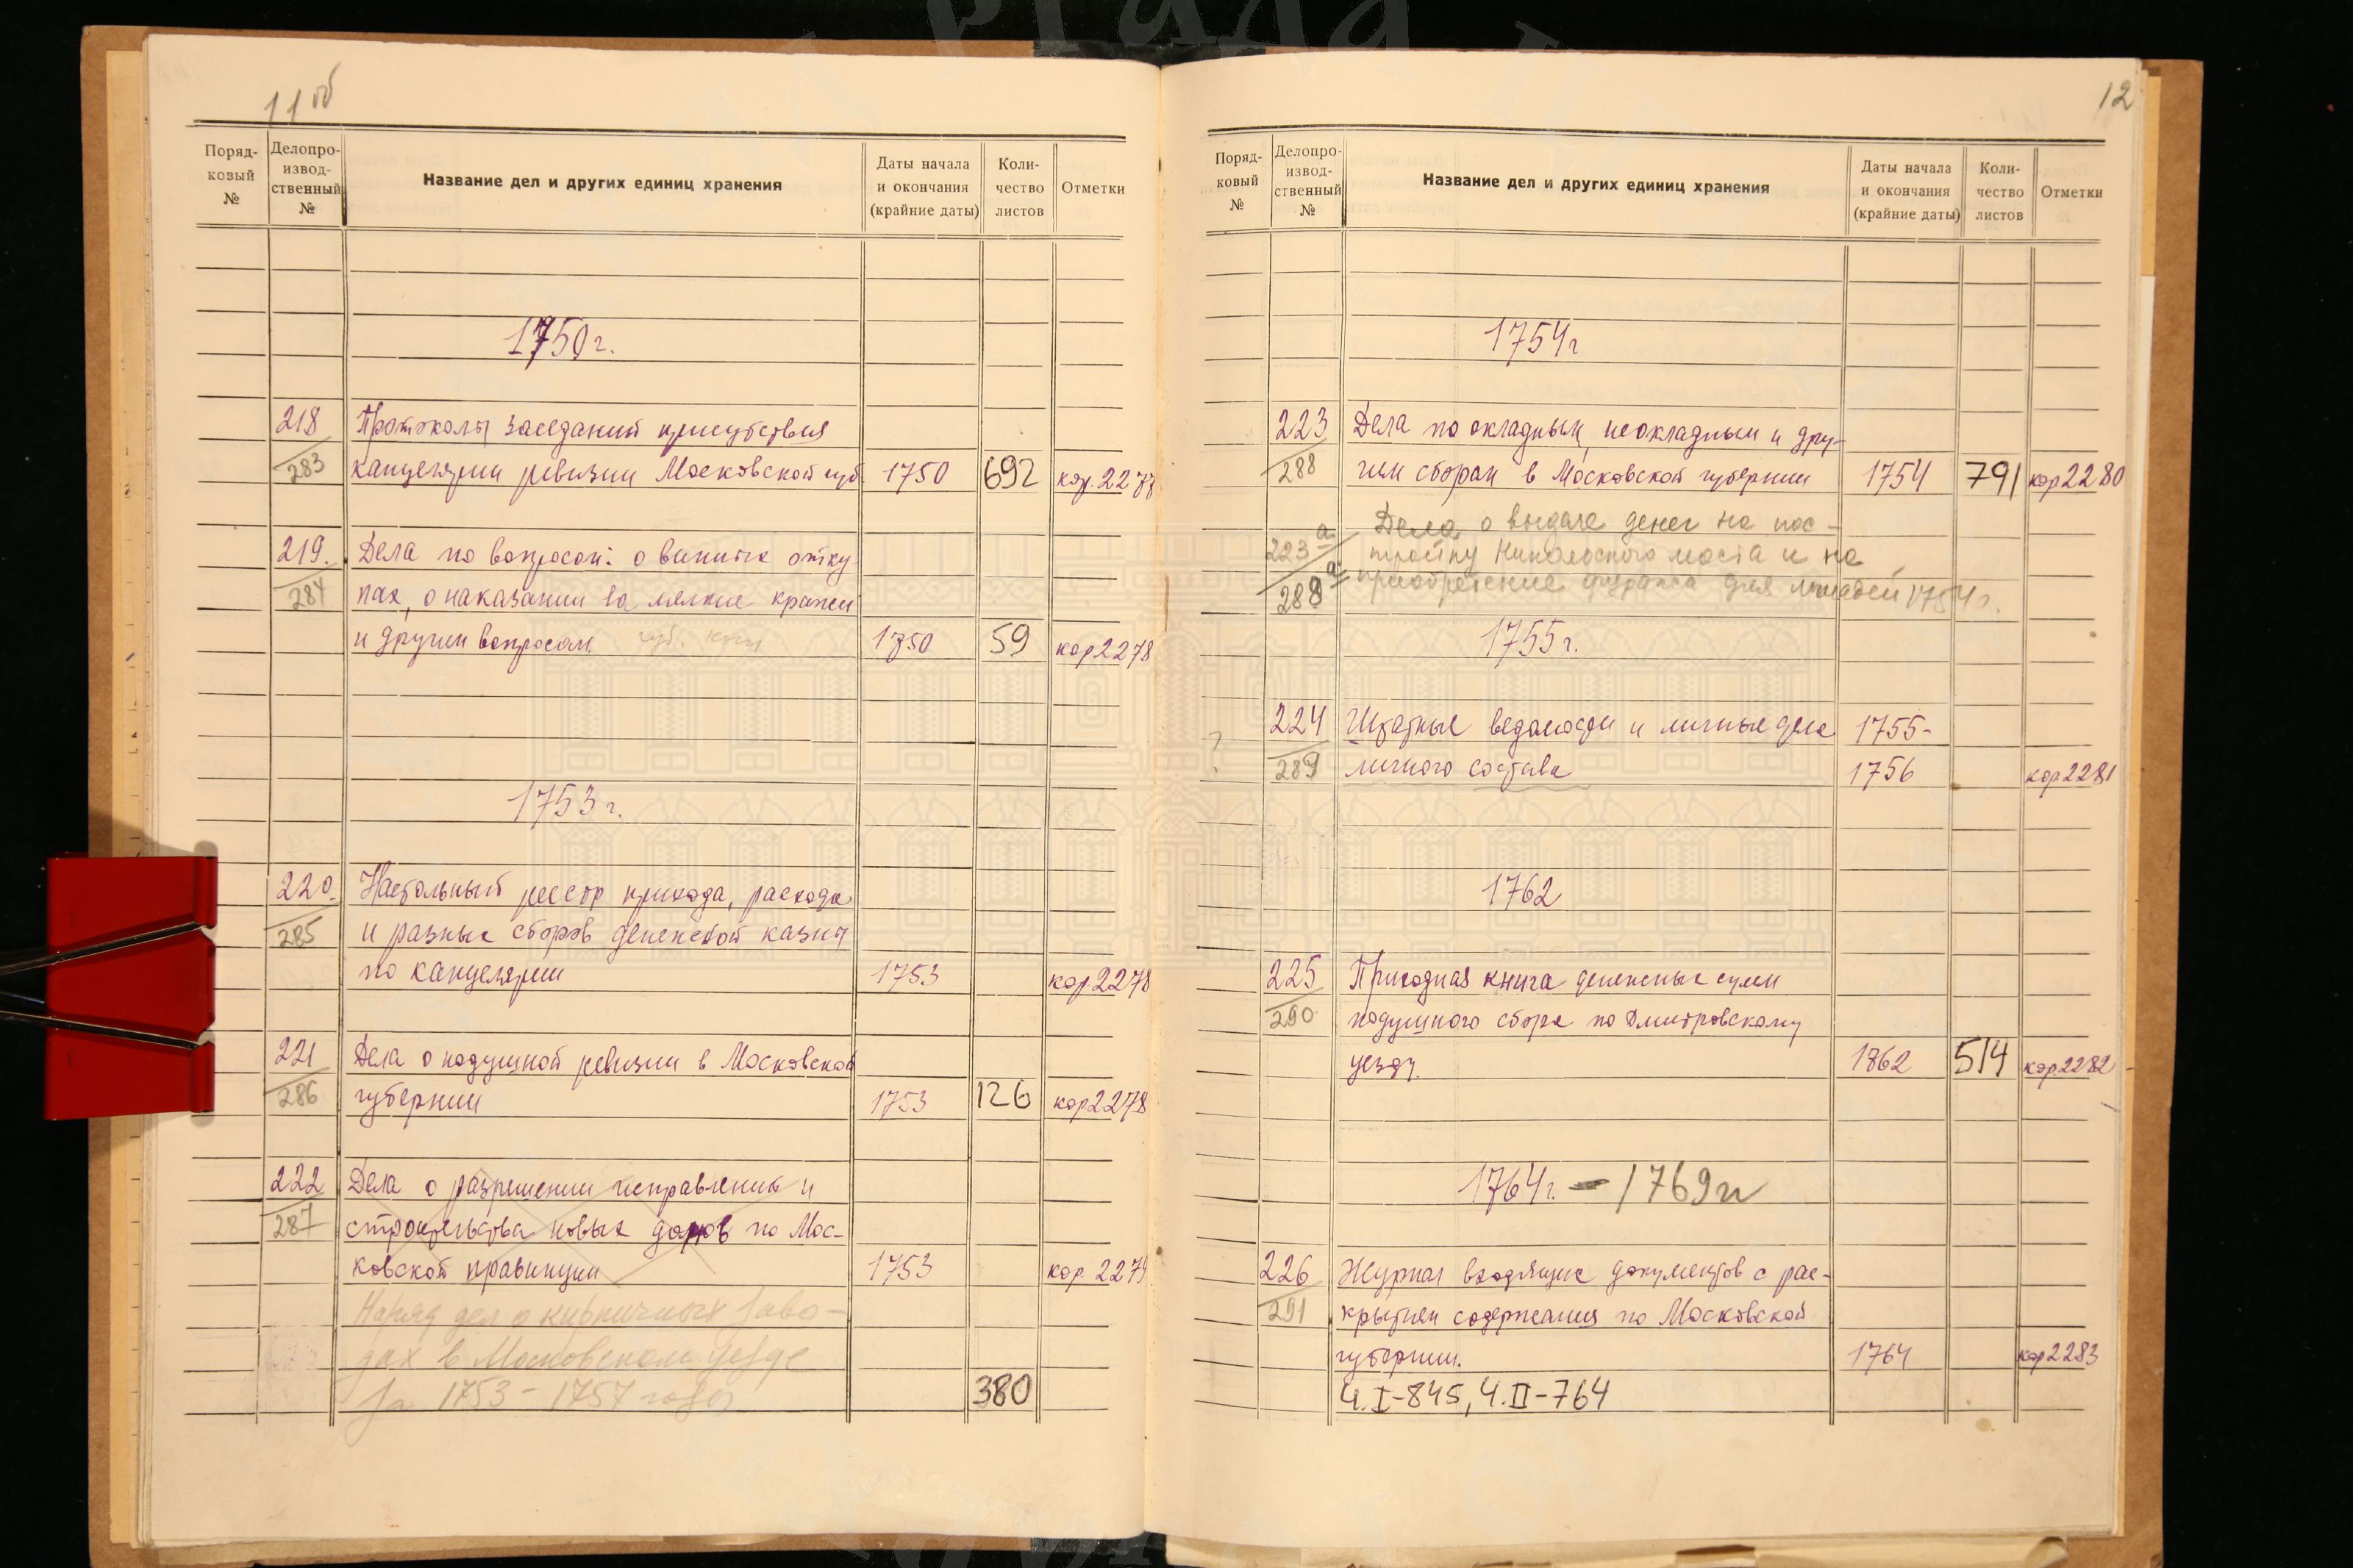 11об
Поряд-
ковый
№
Делопро-
извод-
ственный
№
Название дел и других единиц хранения
Даты начала
и окончания
(крайние даты)
Коли-
чество
листов
Отметки
1750 г.
218 Протоколы заседаний присутствия
283 канцелярии ревизии Московской губ. 1750 692 кор. 2277
219. Дела по вопросам: о винных отку-
284 пах, о наказании за мелкие кражи
и другим вопросам. губ. 1750 59 кор 2278
1753 г.
220. Настольный реестр прихода, расхода
285 и разных сборов денежной казны
по канцелярии 1753 кор 2278
221 Дела о подушной ревизии в Московской
286 губернии 1753 126 кор 2278
222 Дела о разрешении исправления и
287 строительства новых домов по Мос-
ковской провинции 1753 кор. 2279
Наряд дел о кирпичных заво-
дах в Московском уезде
за 1753-1757 годы 380
12
Поряд-
ковый
№
Делопро-
извод-
ственный
№
Название дел и других единиц хранения
Даты начала
и окончания
(крайние даты)
Коли-
чество
листов
Отметки
1754 г
223 Дела по окладным, неокладным и дру-
288 гим сборам в Московской губернии 1754 791 кор 2280
Дела о выдаче денег на пос-
223а тройку моста и на
288а приобретение фуража для лошадей 1754 г.
1755 г.
224 Штатные ведомости и личные дела 1755-
? 289 личного состава 1756 кор 2281
1762
225 Приходная книга денежных сумм
290 подушного сбора по Дмитровскому
уезду. 1862 514 кор. 2282
1764 г. - 1769 гг
226 Журнал входящих документов с рас-
291 крытием содержания по Московской
губернии. 1764 кор 2283
Ч. I-845, Ч. II-764